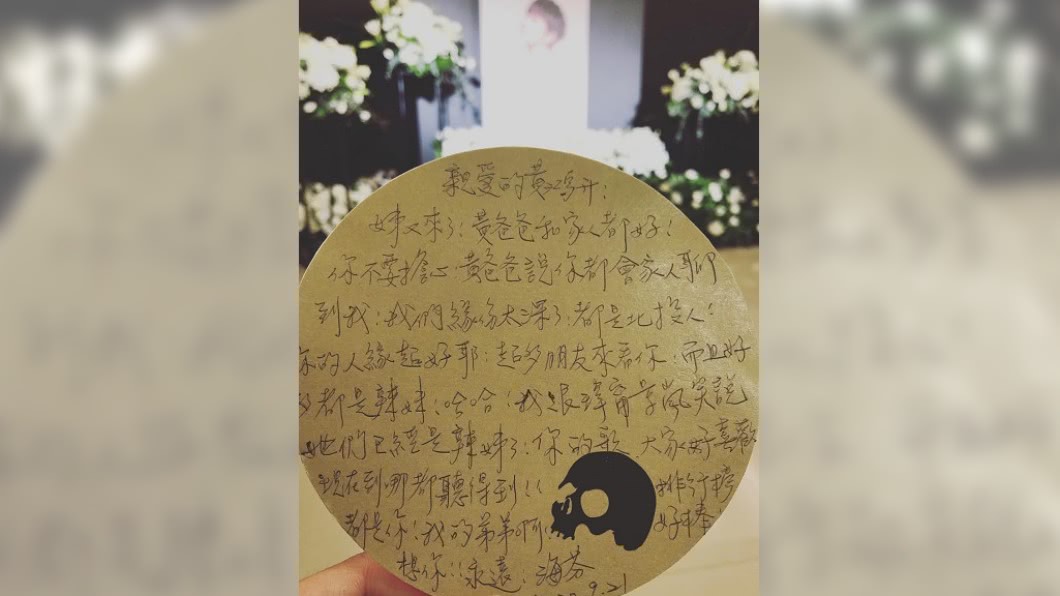 親愛的黃鴻升:
姊又來了!黃爸爸和家人都好!
你不要擔心 黃爸爸說你都會家人聊
到我!我們緣份太深了!都是北投人!
你的人緣超好耶!超多朋友來看你!而且好
多都是辣妹!哈哈!我跟瑋甯景嵐笑說
她們已經是辣妹了!你的歌 大家好喜歡
現在到哪都聽得到!! 排行榜
都是你!我的弟弟啊! 好棒!
想你!!永遠! 海芬
9.21